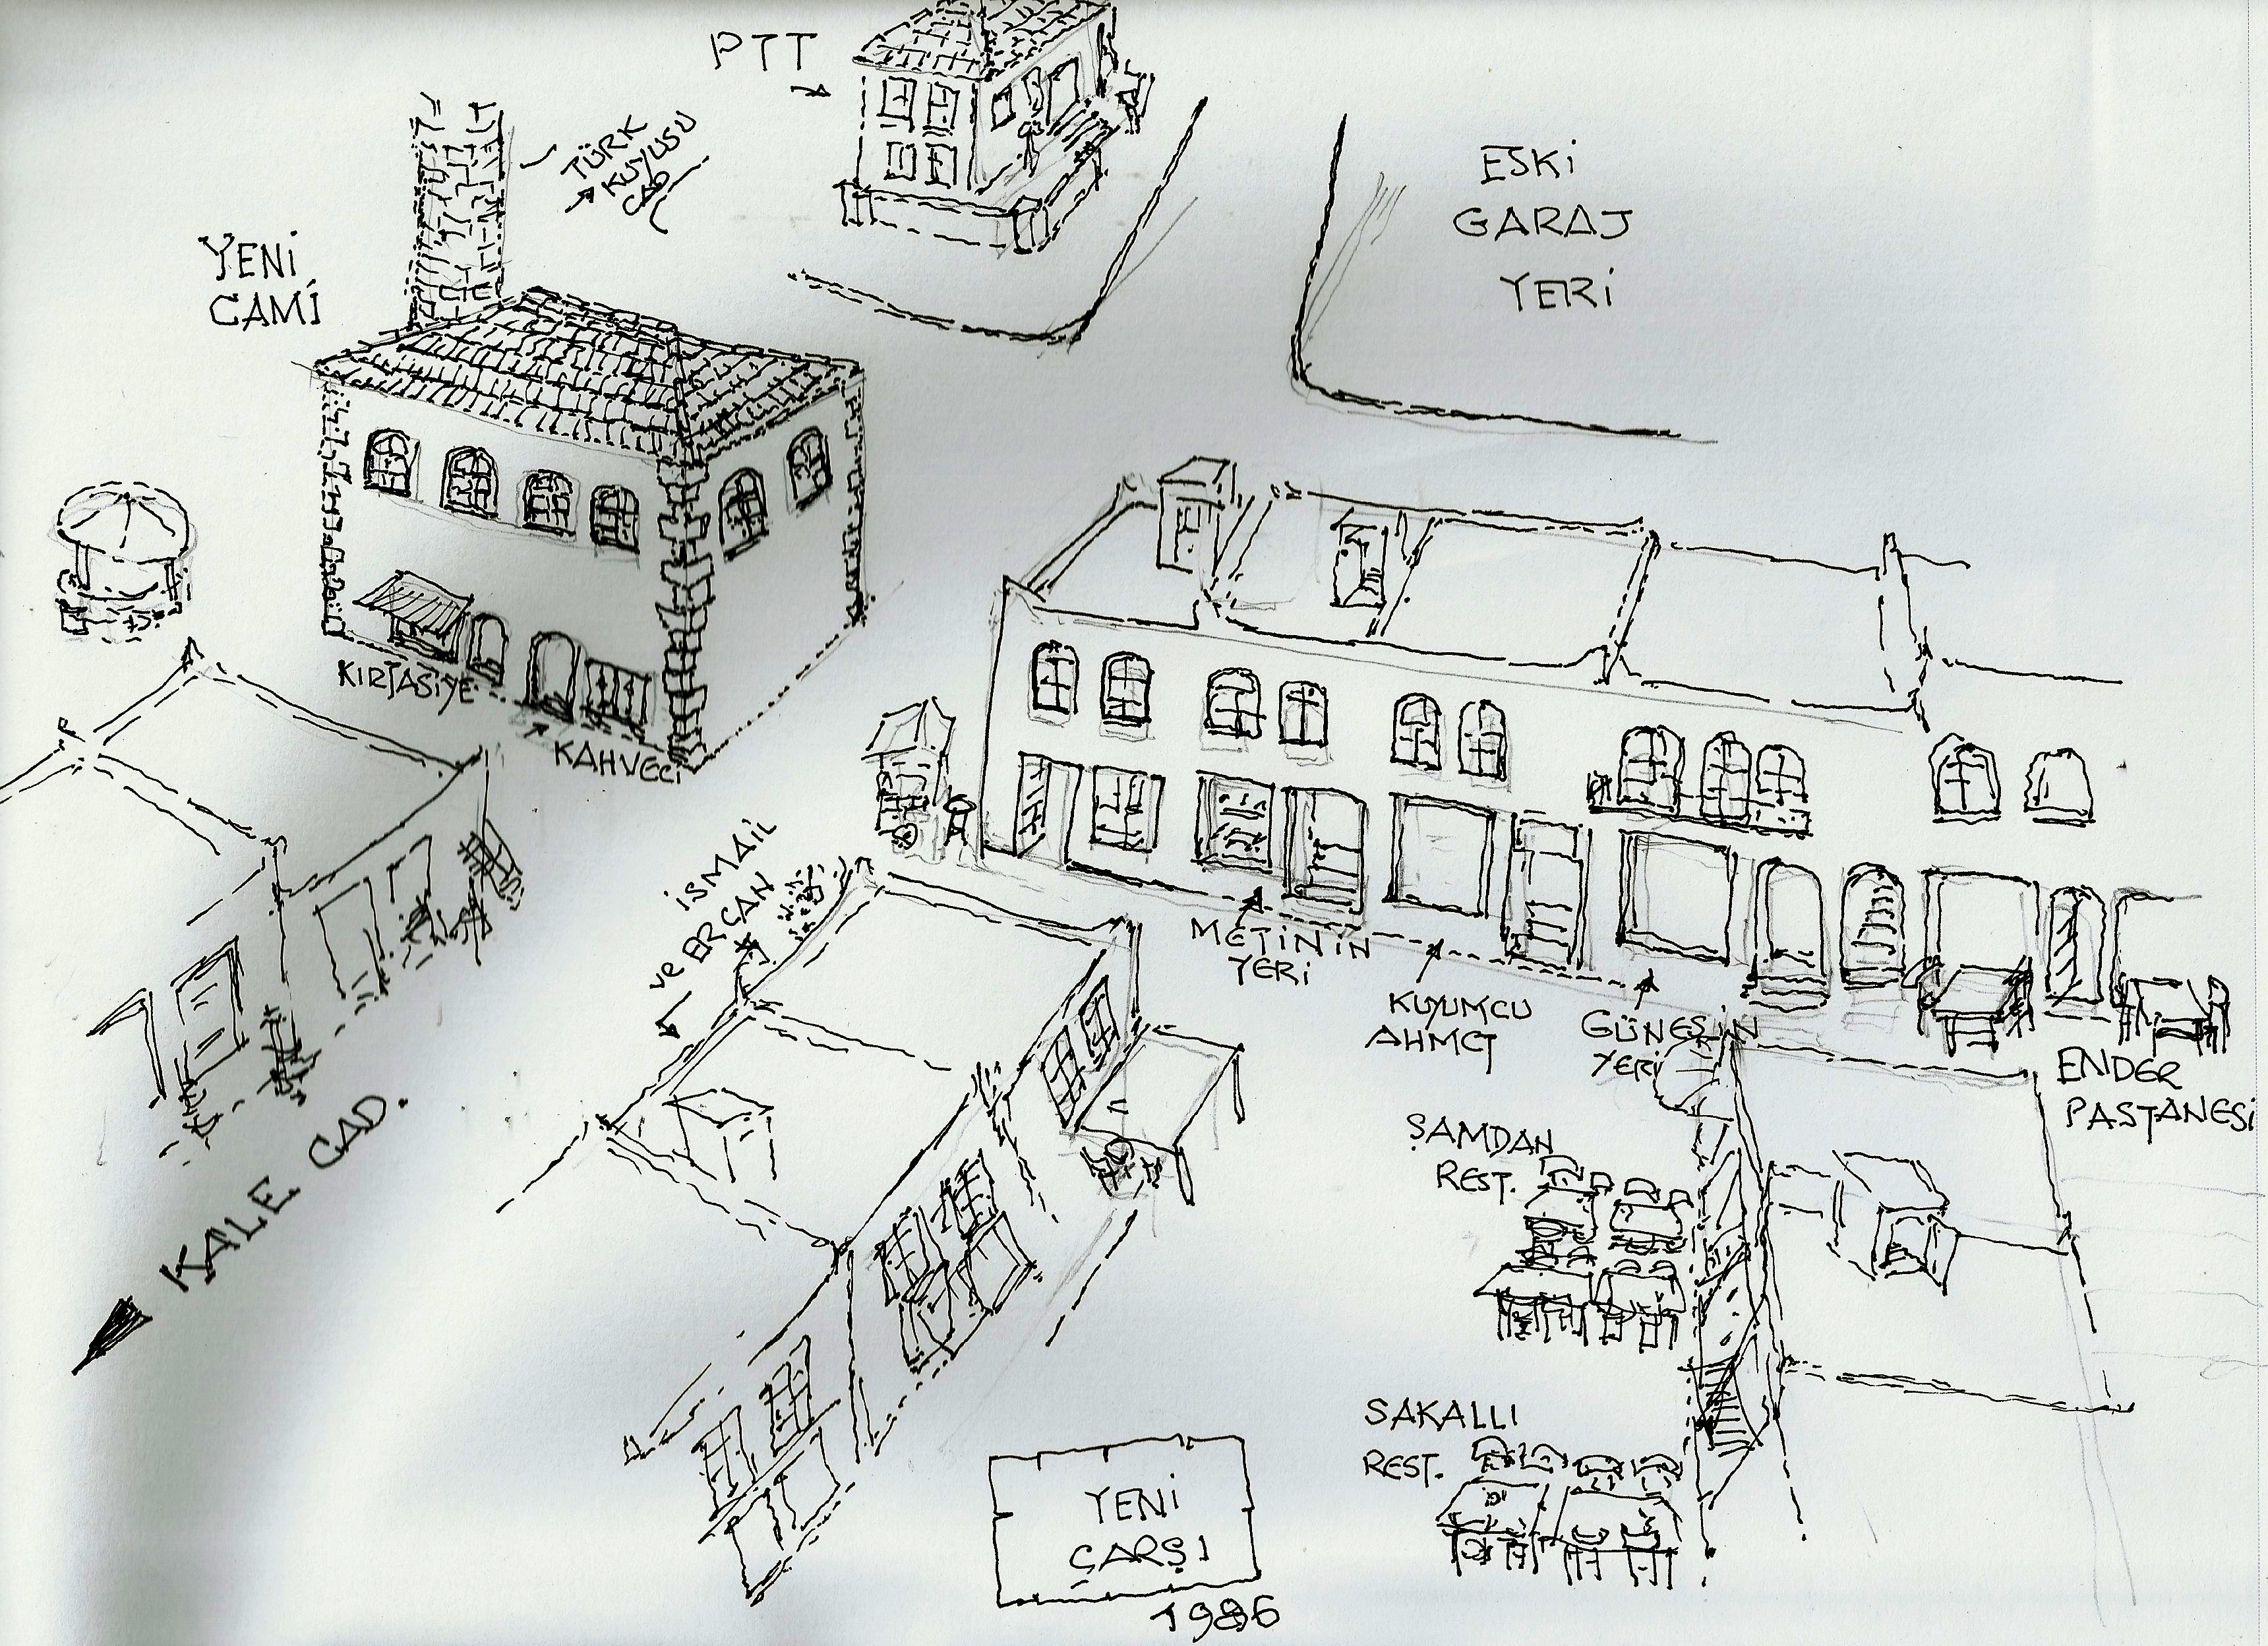 PTT
TÜRK
KUYUSU
CAD
ESKİ
GARAJ
YERİ
YENİ
CAMİ
KIRTASİYE
KAHVECİ
İSMAİL
ve ERCAN
METİNİN
YERİ
KUYUMCU
AHMET
GÜNEŞİN
YERİ
ENDER
PASTANESİ
KALE CAD.
ŞAMDAN
REST.
SAKALLI
REST.
YENİ
ÇARŞI
1986